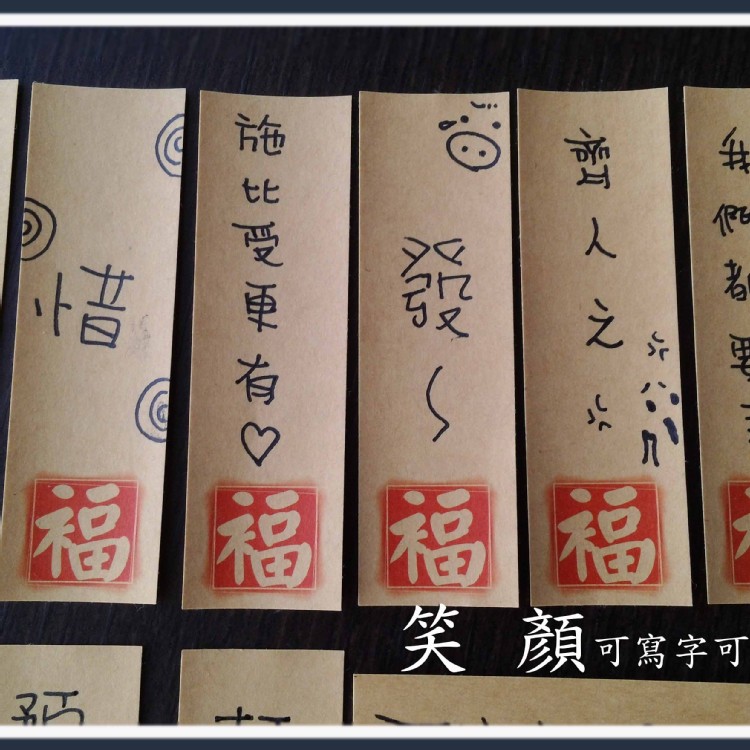 惜
福
施比受更有♡
福
發~
福
人之
福
我們都要
笑 顏可寫字可